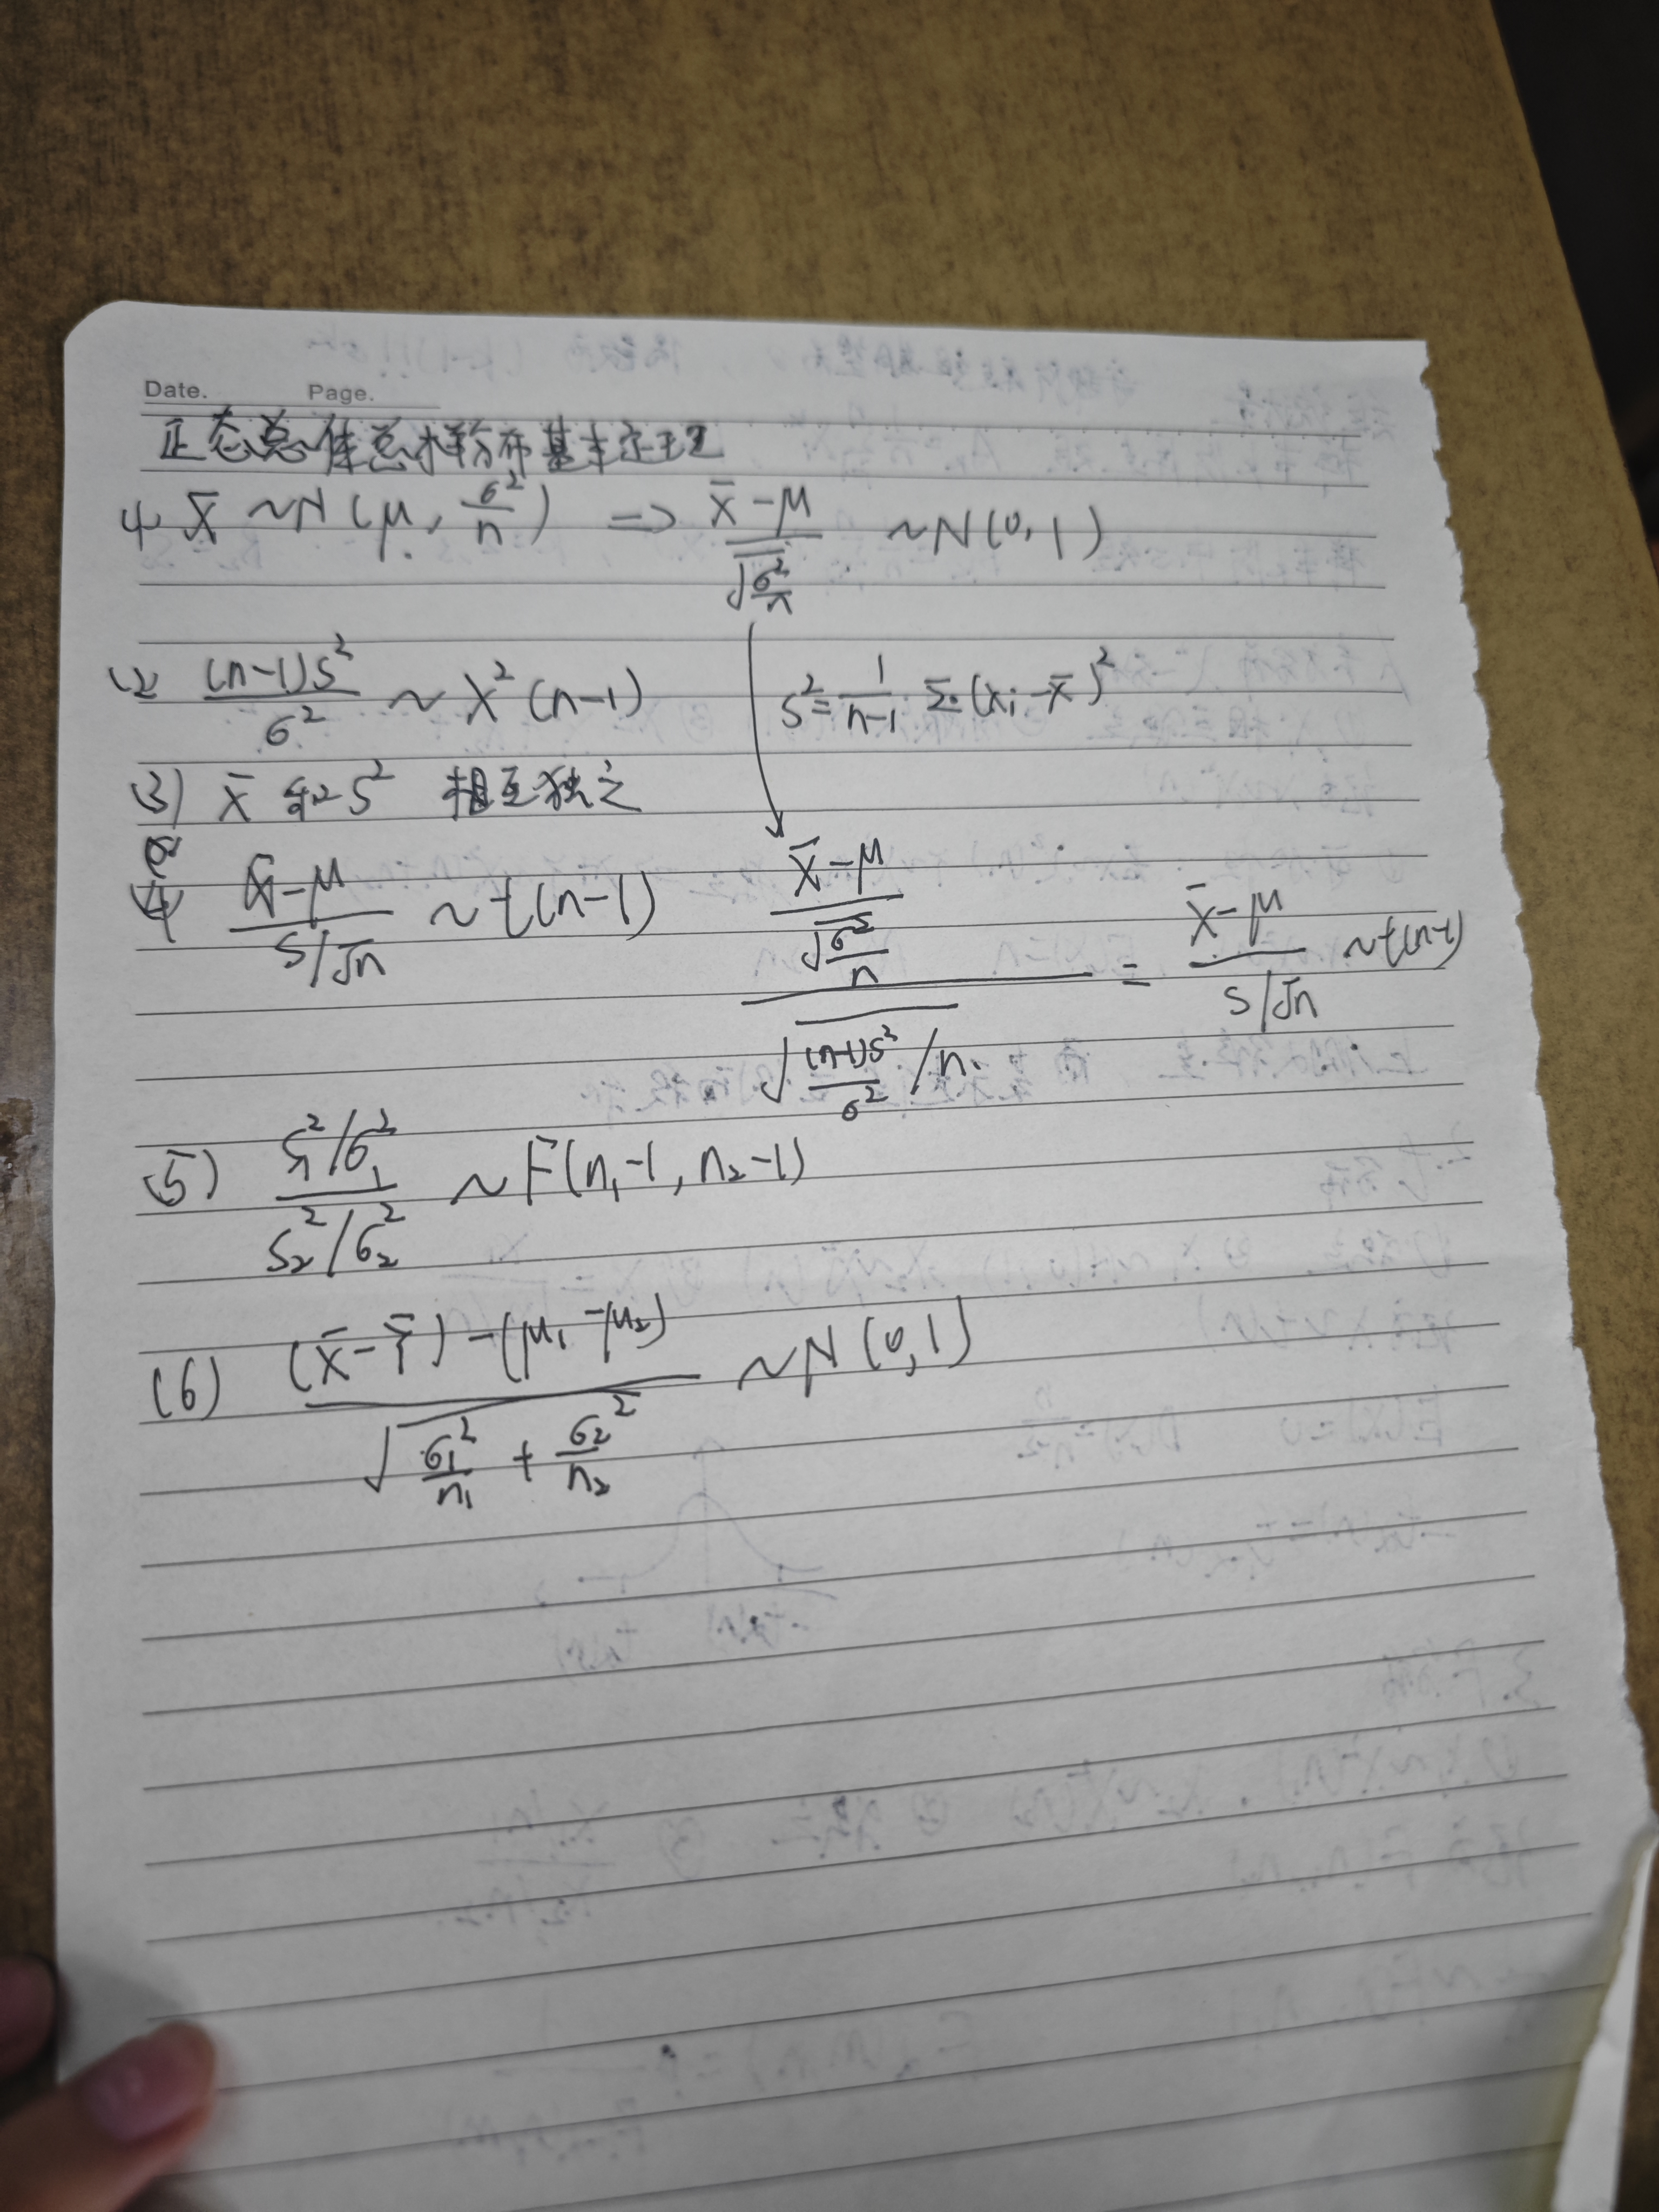 Date. Page.
正态总体总抽分布基本定理
(1) X̄ ~N(μ, σ²/n) => (X̄-μ)/√(σ²/n) ~N(0,1)
(2) (n-1)S²/σ² ~ X²(n-1) S²=1/(n-1) Σ(xᵢ-x̄)²
(3) X̄ 和 S² 相互独立
(4) (X̄-μ)/(S/√n) ~t(n-1) ((X̄-μ)/√(σ²/n))/√((n-1)S²/σ² /n) = (X̄-μ)/(S/√n) ~t(n-1)
(5) (S₁²/σ₁²)/(S₂²/σ₂²) ~F(n₁-1, n₂-1)
(6) ((X̄-Ȳ)-(μ₁-μ₂))/√(σ₁²/n₁ + σ₂²/n₂) ~N(0,1)